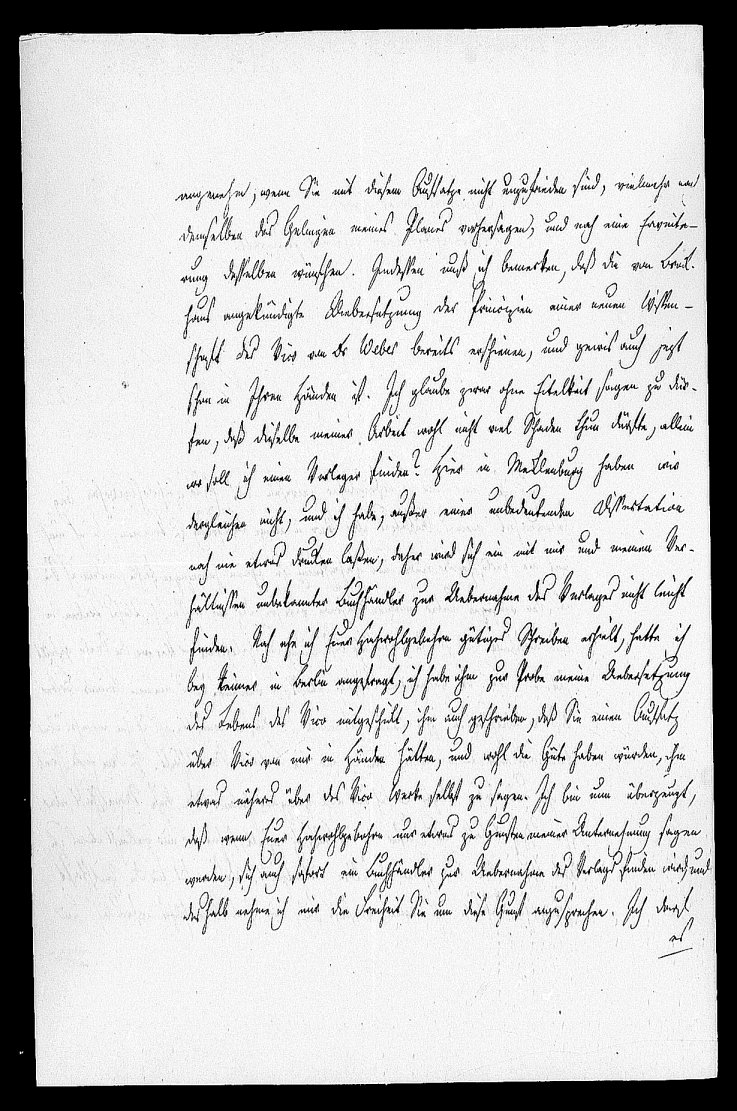 angenehm, wenn Sie mit diesem Aufsatze nicht unzufrieden sind, vielmehr
demselben das Gelingen meines Planes vorhersagen, und noch eine Erweite-
rung desselben wünschen. Indessen muß ich bemerken, daß die von Brock-
haus angekündigte Uebersetzung der Principien einer neuen Wissen-
schaft des Vico von Dr Weber bereits erschienen, und gewis auch jezt
schon in Ihren Händen ist. Ich glaube zwar ohne Eitelkeit sagen zu dür-
fen, daß dieselbe meiner Arbeit wohl nicht viel Schaden thun dürfte, allein
wo soll ich einen Verleger finden? Hier in Mecklenburg haben wir
dergleichen nicht, und ich habe, außer einer unbedeutenden Dissertation
noch nie etwas drucken laßen, daher wird sich ein mit mir und meinen Ver-
hältnissen unbekannter Buchhändler zur Uebernahme des Verlages nicht leicht
finden. Noch ehe ich Euer Hochwohlgebohrn gütiges Schreiben erhielt, hatte ich
bey Reimer in Berlin angefragt, ich habe ihm zur Probe meine Uebersetzung
des Lebens des Vico mitgeschikt, ihm auch geschrieben, daß Sie einen Aufsatz
über Vico von mir in Händen hätten, und wohl die Güte haben würden, ihm
etwas näheres über des Vico Werke selbst zu sagen. Ich bin nun überzeugt,
daß wenn Euer Hochwohlgebohrn nur etwas zu Gunsten meiner Unternehmung sagen
werden, sich auch sofort ein Buchhändler zur Uebernahme des Verlags finden wird, und
deshalb nehme ich mir die Freiheit Sie um diese Gunst anzusprechen. Ich darf
es